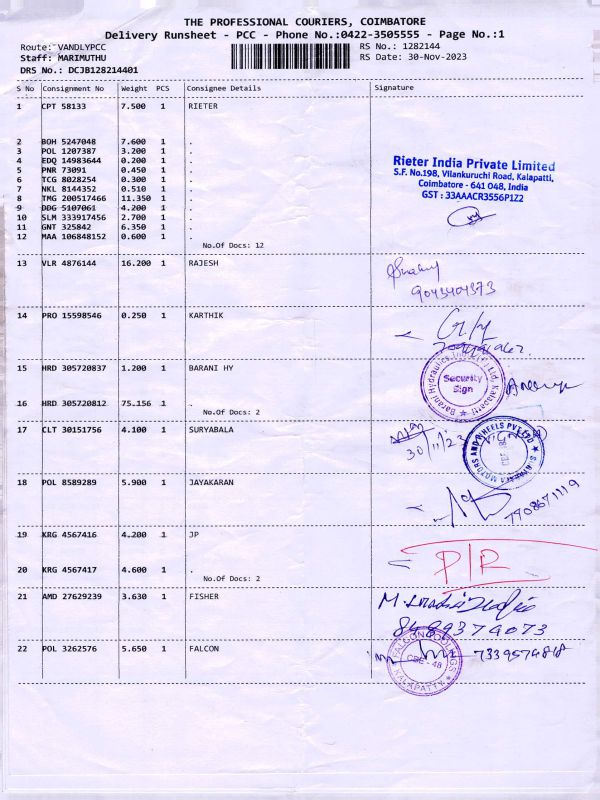 THE PROFESSIONAL COURIERS, COIMBATORE
Delivery Runsheet - PCC - Phone No.:0422-3505555 - Page No.:1
Route: VANDLYPCC
RS No.: 1282144
Staff: MARIMUTHU
RS Date: 30-Nov-2023
DRS No.: DCJB128214401
S No Consignment No Weight PCS Consignee Details Signature
1 CPT 58133 7.500 1 RIETER
2 BOH 5247048 7.600 1 .
3 POL 1207387 3.200 1 .
4 EDQ 14983644 0.200 1 .
5 PNR 73091 0.450 1 .
6 TCG 8028254 0.300 1 .
7 NKL 8144352 0.510 1 .
8 TMG 200517466 11.350 1 .
9 DDG 5107061 4.200 1 .
10 SLM 333917456 2.700 1 .
11 GNT 325842 6.350 1 .
12 MAA 106848152 0.600 1 .
No.Of Docs: 12
Rieter India Private Limited
S.F. No.198, Vilankuruchi Road, Kalapatti,
Coimbatore - 641 048, India
GST : 33AAACR3556P1Z2
13 VLR 4876144 16.200 1 RAJESH
9043404373
14 PRO 15598546 0.250 1 KARTHIK
15 HRD 305720837 1.200 1 BARANI HY
Barani Hydraulics India (P) Ltd, Kalapatti
Security
Sign
16 HRD 305720812 75.156 1 .
No.Of Docs: 2
17 CLT 30151756 4.100 1 SURYABALA
30/11/23
18 POL 8589289 5.900 1 JAYAKARAN
7908671119
19 KRG 4567416 4.200 1 JP
P/R
20 KRG 4567417 4.600 1 .
No.Of Docs: 2
21 AMD 27629239 3.630 1 FISHER
8489374073
22 POL 3262576 5.650 1 FALCON
CBE - 48
KALAPATTY